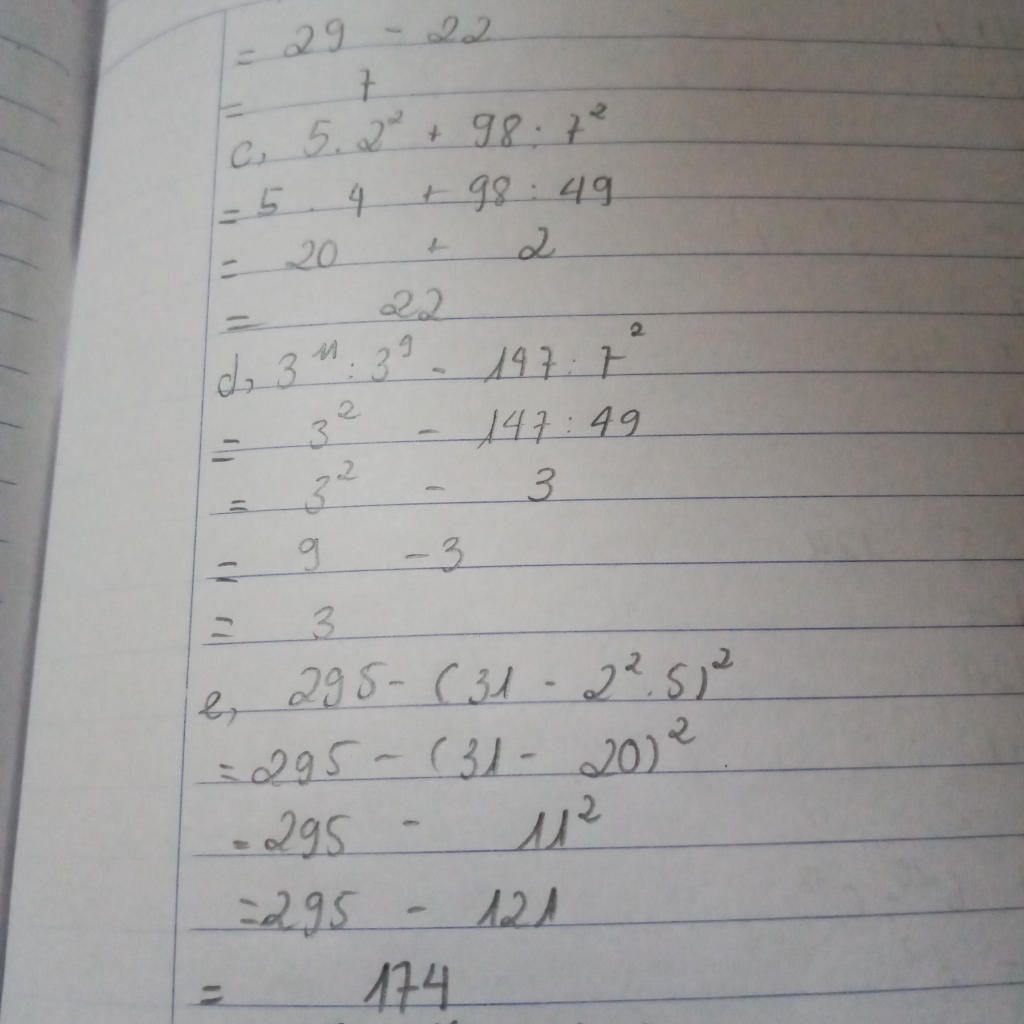 = 29 - 22
= 7
c, 5.2² + 98 : 7²
= 5 . 4 + 98 : 49
= 20 + 2
= 22
d, 3¹¹ : 3⁹ - 147 : 7²
= 3² - 147 : 49
= 3² - 3
= 9 - 3
= 3
e, 295 - (31 - 2².5)²
= 295 - (31 - 20)²
= 295 - 11²
= 295 - 121
= 174